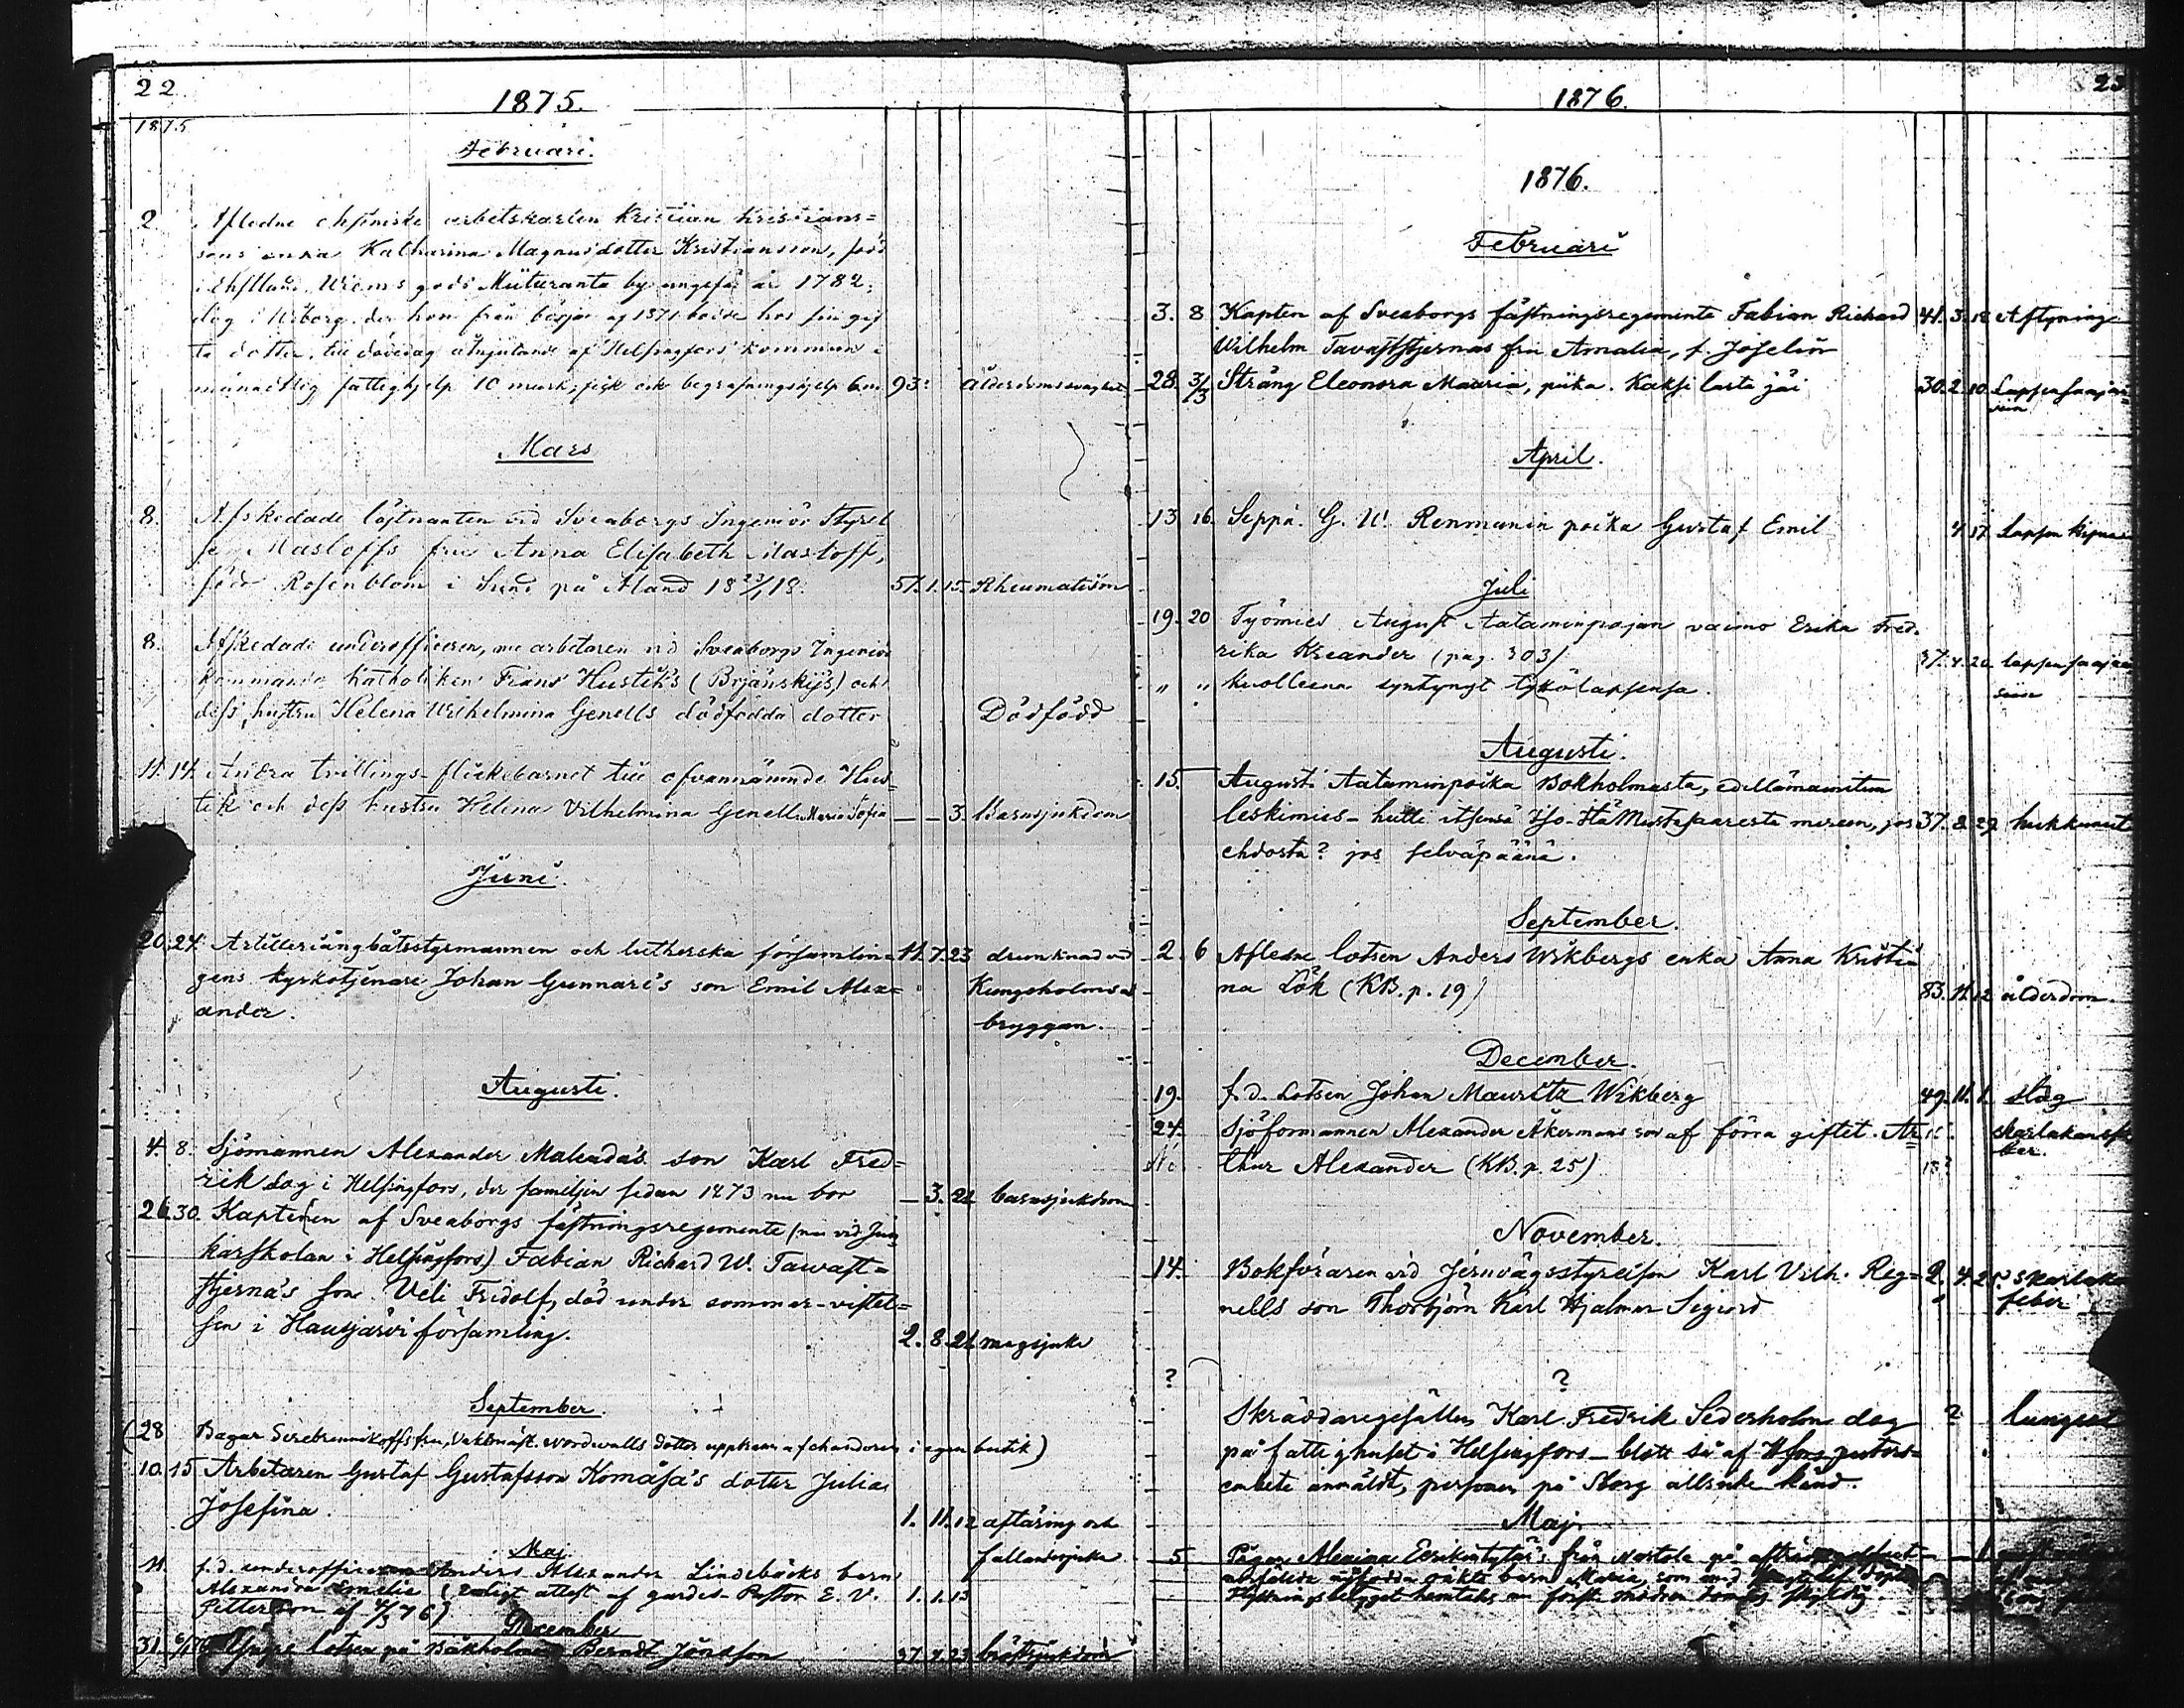 22
1875.
1875
Februari.
2. Afledne ehstniske arbetskarlen Kristian Kristians=
sons enka Katharina Magnusdotter Kristiansson, född
i Ehstland, Wiems gods by ungefär år 1782,
dog i Wiborg, der hon från början af 1871 hos sin gif
ta dotter, till dödedag åtnjutande af Helsingfors kommun
månadtlig fattighjelp 10 mark, fick ock begrafningshjelp 6 m 93. ålderdomssvaghet
Mars
8. Afskedade löjtnanten vid Sveaborgs Ingeniör Styrel
sen Masloffs fru Anna Elisabeth Masloff,
född Rosenblom i Sund på Åland 18 23/1 18. 57. 1. 15. Rheumatism
8. Afskedade underofficeren, nu arbetaren vid Sveaborgs Ingeniör
kommando katholiken Frans Husteks (Brjanskijs) och
dess hustru Helena Wilhelmina Genells dödfödda dotter Dödfödd
11. 14. Andra tvillings-flickebarnet till ofvannämnde Hus=
tek och dess hustru Helena Vilhelmina Genell, Maria Sofia — — 3. Barnsjukdom
Juni.
20. 24. Artilleriångbåtsstyrmannen och lutherska församlin= 11. 7. 23 drunknad vid
gens kyrkotjenare Johan Gunnari's son Emil Alex= Kungsholms
ander. bryggan.
Augusti.
4. 8. Sjömannen Alexander Malenda's son Karl Fred=
rik dog i Helsingfors, der familjen sedan 1873 nu bor — 3. 21 barnsjukdom
26. 30. Kaptenen af Sveaborgs fästningsregemente (nu vid Jun
karskolan i Helsingfors) Fabian Richard W. Tawast=
stjerna's son Veli Fridolf, död under sommar-vistel=
sen i Hausjärvi församling. 2. 8. 21 magsjuka
September.
(28 Bagar Serebrennikoffs fru, Nordwalls dotter i egen butik)
10. 15 Arbetaren Gustaf Gustafsson Komåsa's dotter Julia
Josefina. 1. 11. 12 aftäring och
fallandesjuka
Maj.
11. f.d. underofficeren Anders Alexander Lindebäcks barn
Alexandra Emelia (enligt attest af gardes-Pastor E. V. 1. 1. 13
Petterson af 4/3 76)
December
31. 6/1 76 Yngre lotsen på Båkholmen Berndt Jönsson 37. 7. 23 bröstsjukdom
1876. 23
1876.
Februari
3. 8 Kapten af Sveaborgs fästningsregemente Fabian Richard 41. 3. 12 Aftyning
Wilhelm Tavaststjernas fru Amalia, f. Joselin
28. 3/3 Sträng Eleonora Mauria, piika. Kaksi lasta jäi 30. 2. 10 Lapsensaami=
seen
April.
13. 16. Seppä G. W. Renmanin poika Gustaf Emil 4. 17 Lapsen kipua
Juli
19. 20 Työmies August Aataminpojan vaimo Erika Fred=
rika Kreander (pag. 303) 37. 4. 20 lapsensaami
seen
" " kuolleena syntynyt tykölapsensa.
Augusti.
15. August Aataminpoika Bokholmasta, edellämainitun
leskimies – hukkui itsensä Iso- Mustasaaresta mereen, jos 37. 8. 29 hukkunut
ehdosta? jos selväpäänä.
September.
2. 6 Afledne lotsen Anders Wikbergs enka Anna Kristi=
na Lök (KB. p. 19) 83. 11. 12 ålderdom.
December.
19. f.d. Lotsen Johan Mauritz Wikberg 49. 11. 1. slag
24. Sjöformannen Alexander Åkermans son af förra giftet. Ar= 15. skarlakansfe
ber.
thur Alexander (KB. p. 25) 13?
November.
14. Bokföraren vid Jernvägsstyrelsen Karl Vilh. Reg= 2. 4. 25? skarlakans
feber
nells son Thorbjörn Karl Hjalmar Sigurd
? ?
Skräddaregesällen Karl Fredrik Sederholm dog ? lungsot
på fattighuset i Helsingfors – blott så af Hfors pastors=
embete anmäldt, personen på Sborg alls icke känd.
Maj.
5 Pigan från
barn Maria, som